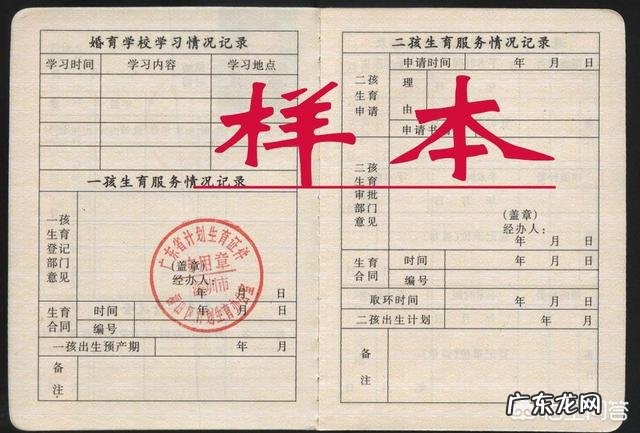 婚育学校学习情况记录
学习时间 学习内容 学习地点
一孩生育服务情况记录
一孩
生育
登记
部门
意见
广东省计划生育证件
专用章
深圳市
(盖章)
经办人：
年 月 日
生育
合同
时间 年 月 日
编号
一孩出生预产期 年 月
备
注
二孩生育服务情况记录
二孩
生育
申请
申请时间 年 月 日
理
由
申请书
二孩
生育
审批
部门
意见
(盖章)
经办人：
年 月 日
生育
合同
时间 年 月 日
编号
取环时间 年 月 日
二孩出生计划 年 月
备
注
样本
广东龙网